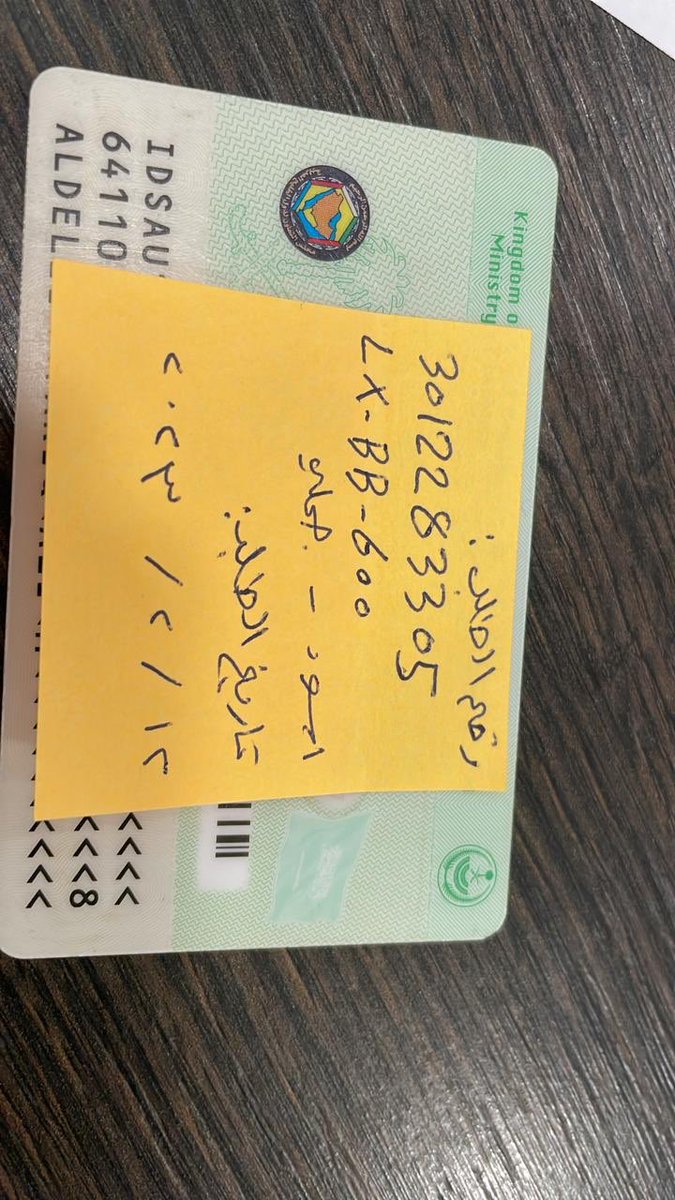 Kingdom o
Ministry
رقم الطلب:
3012283305
LX-BB-600
اسود - جملي
تاريخ الطلب:
١٢ / ٢ / ٢٠٢٣
IDSAU
64110
<<<
<<<8
ALDEL
<<<<